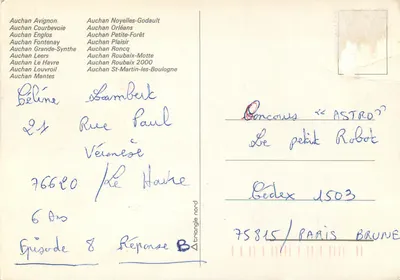 Auchan Avignon
Auchan Courbevoie
Auchan Englos
Auchan Fontenay
Auchan Grande-Synthe
Auchan Leers
Auchan Le Havre
Auchan Louvroil
Auchan Mantes
Auchan Noyelles-Godault
Auchan Orléans
Auchan Petite-Forêt
Auchan Plaisir
Auchan Roncq
Auchan Roubaix-Motte
Auchan Roubaix 2000
Auchan St-Martin-les-Boulogne
Céline Lambert
21 Rue Paul
Véronèse
76620 / Le Havre
6 Ans
Episode 8 Réponse B
triangle nord
Concours "ASTRO"
Le petit Robot
Cédex 1503
75815 / PARIS BRUNE